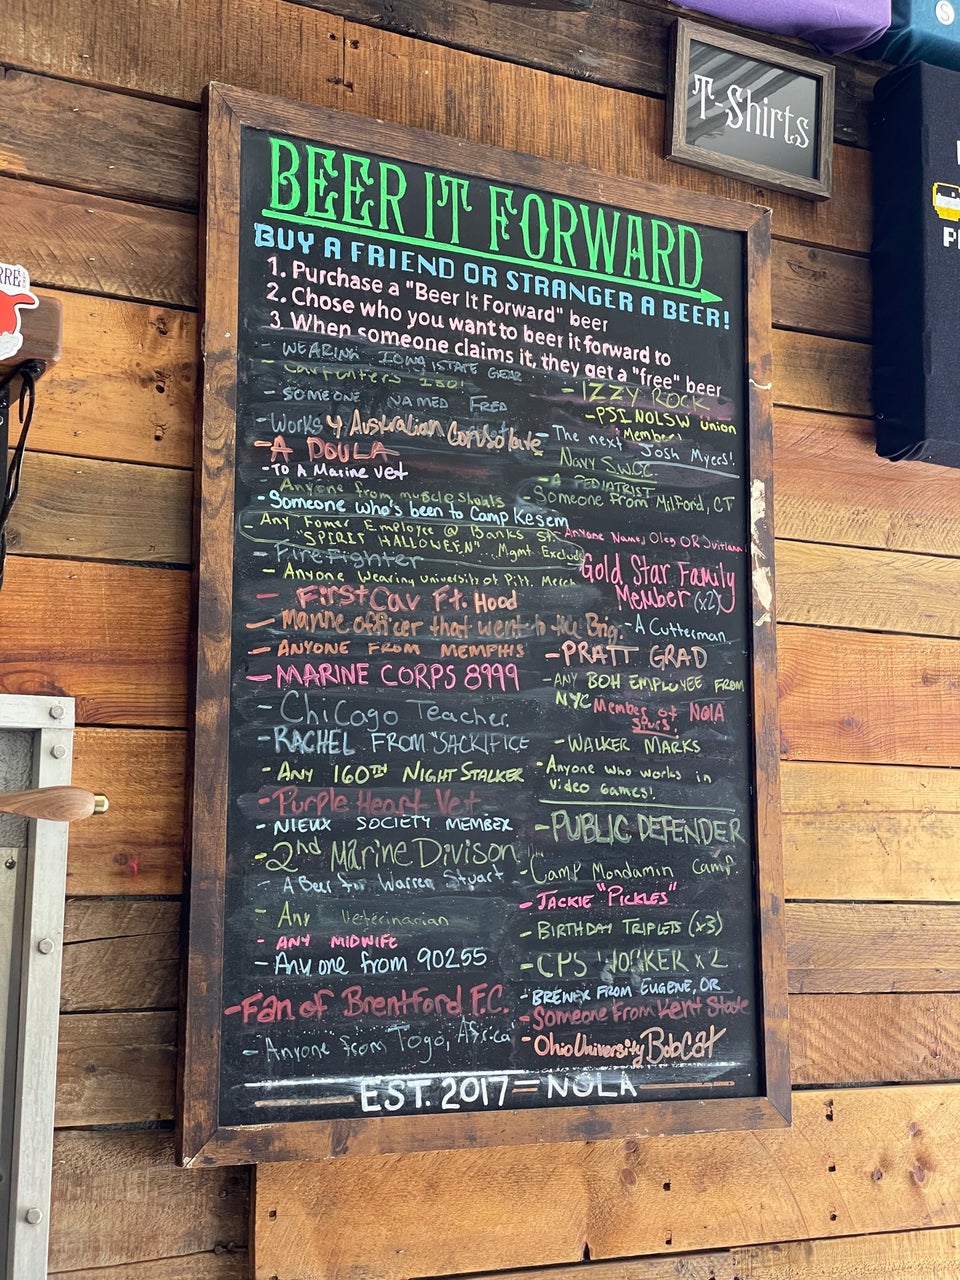 T-Shirts
BEER IT FORWARD
BUY A FRIEND OR STRANGER A BEER!
1. Purchase a "Beer It Forward" beer
2. Chose who you want to beer it forward to
3. When someone claims it, they get a "free" beer
- WEARING IOWA STATE GEAR
Carpenters
- SOMEONE NAMED FRED
- Works 4 Australian Consolate
- A DOULA
- To A Marine Vet
- Anyone from muscle shoals
- Someone who's been to Camp Kesem
- Any "Fomer Employee @ Banks St
"SPIRIT HALLOWEEN" .. Mgmt Exclude
- FireFighter
- Anyone Wearing University of Pitt. Merch
- First Cav Ft. Hood
- Marine officer that went to the Brig.
- ANYONE FROM MEMPHIS
- MARINE CORPS 8999
- Chicago Teacher
- RACHEL FROM "SACKIFICE
- ANY 160TH NIGHT STALKER
- Purple Heart Vet
- NIEUX SOCIETY MEMBER
- 2nd Marine Divison
- A Beer for Warren Stuart
- Any Veterinarian
- ANY MIDWIFE
- Any one from 90255
- Fan of Brentford F.C.
- Anyone from Togo, Africa
- IZZY ROCK
- PSI NOLSW Union
Member!
- The next Josh Myers!
Navy SWCC
- A PEDIATRIST
- Someone from Milford, CT
- Anyone Name, Oleg OR
Gold Star Family
Member (x2)
- A Cutterman
- PRATT GRAD
- ANY BOH EMPLOYEE FROM
NYC
Member of NOLA
Spurs.
- WALKER MARKS
- Anyone who works in
Video Games!
- PUBLIC DEFENDER
- Camp Mondamin Camp
- JACKIE "PICKLES"
- BIRTHDAY TRIPLETS (x3)
- CPS WORKER x 2
- BREWER FROM EUGENE, OR
- Someone from Kent State
- Ohio University BobCat
EST. 2017 = NOLA